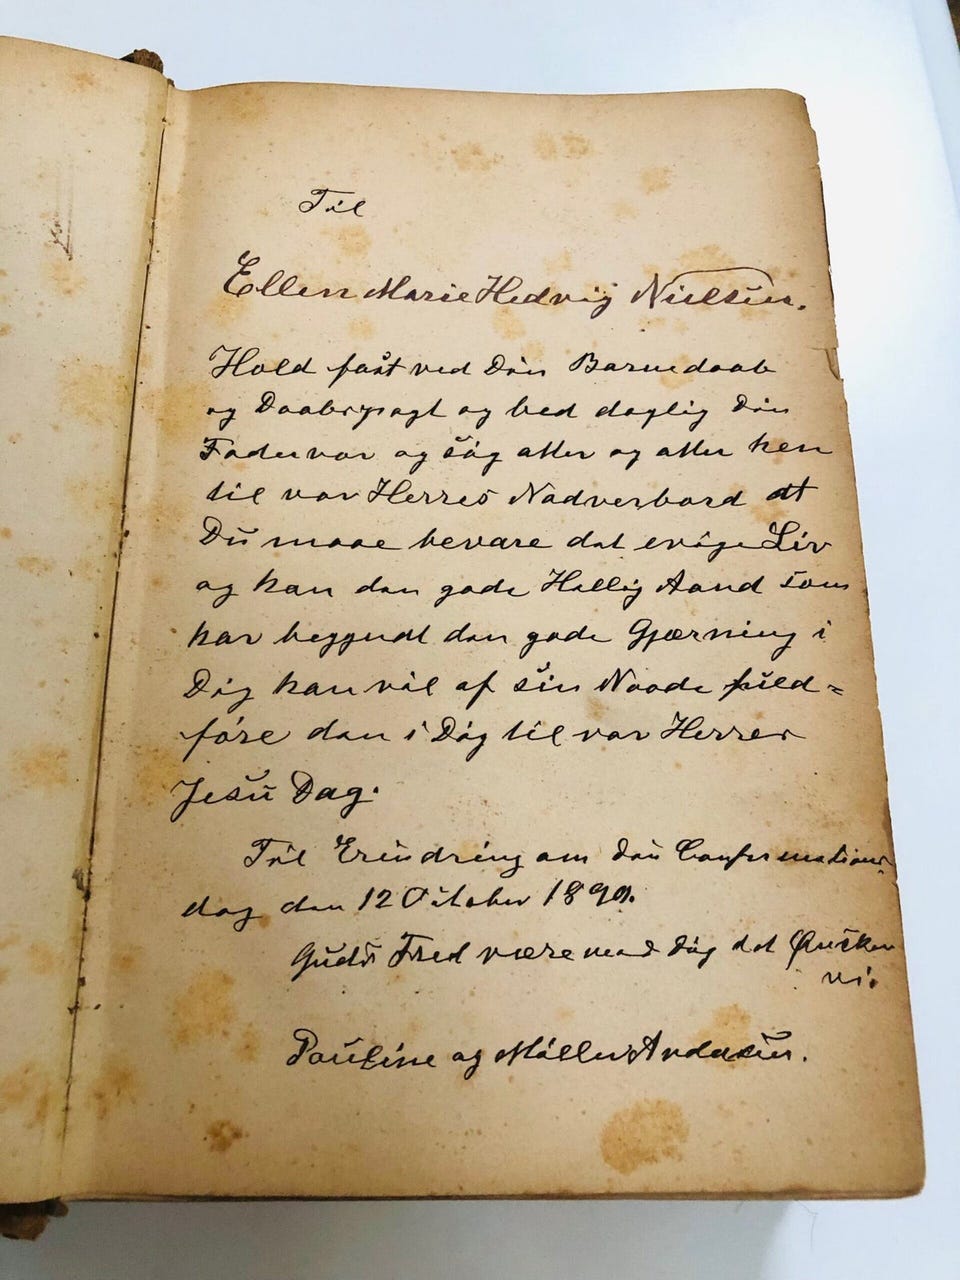 Til
Ellen Marie Hedvig Nielsen.
Hold fast ved Din Barnedaab
og Daabspagt og bed daglig Din
Fadervor og søg atter og atter hen
til vor Herres Nadverbord at
Du maae bevare det evige Liv
og han den gode Hellig Aand som
har begyndt den gode Gjærning i
Dig han vil af sin Naade fuld=
føre den i Dig til vor Herres
Jesu Dag.
Til Erindring om din Confirmations
dag den 12 October 1890.
Guds Fred være med dig det Ønsker
vi.
Pauline og Møller Andersen.